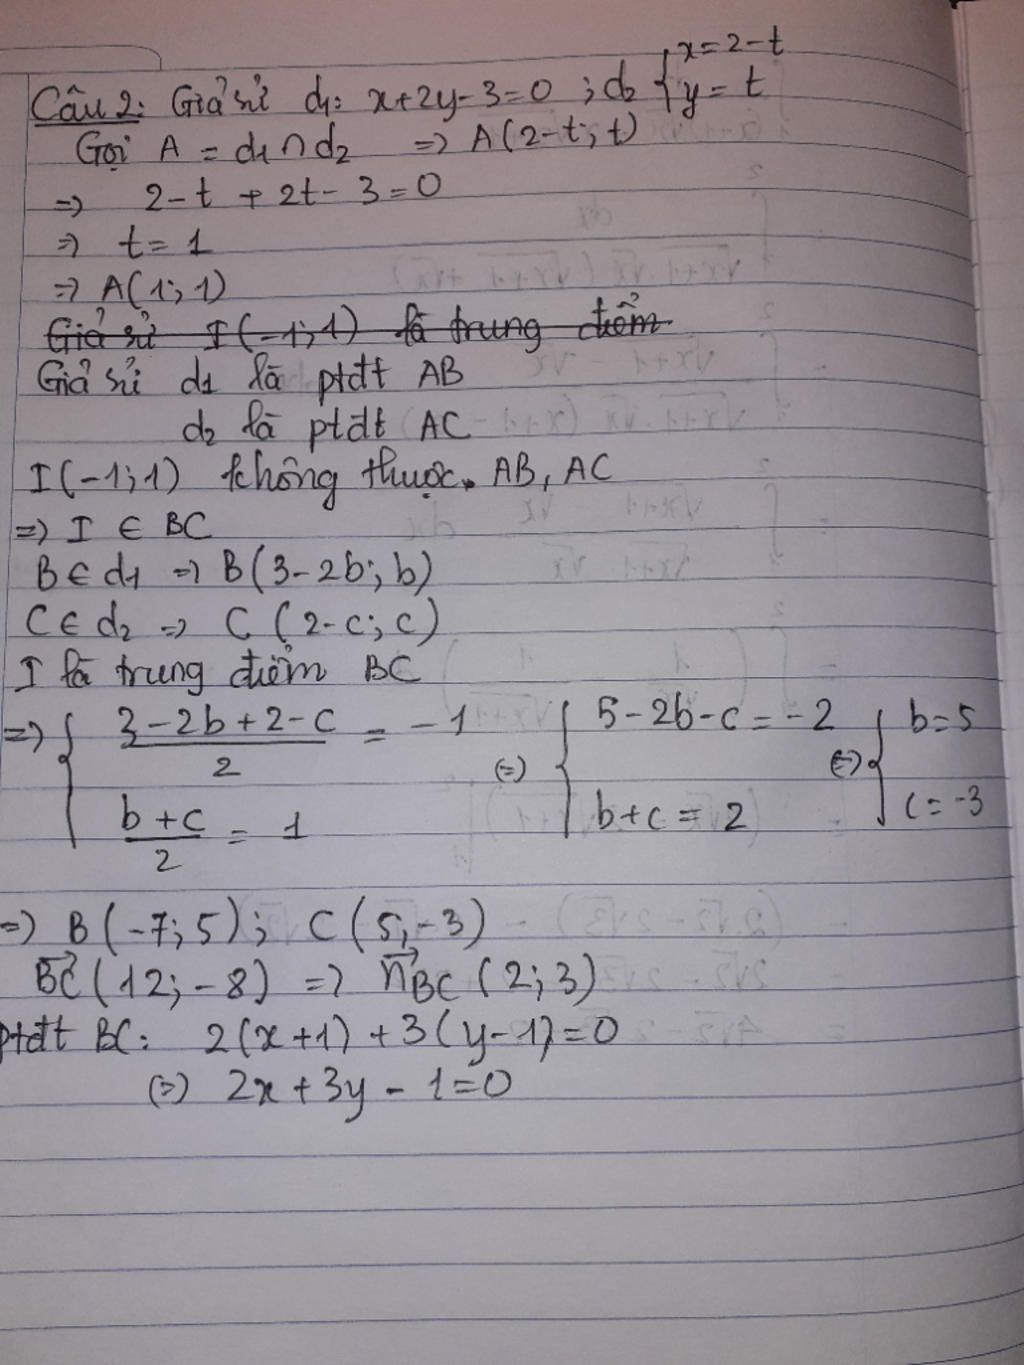 Câu 2: Giả sử d₁: x+2y-3=0 ; d₂ { x=2-t
y=t
Gọi A = d₁∩d₂ => A(2-t; t)
=> 2-t+2t-3=0
=> t=1
=> A(1; 1)
Giả sử I(-1; 1) là trung điểm
Giả sử d₁ là ptđt AB
d₂ là ptđt AC
I(-1; 1) không thuộc AB, AC
=> I ∈ BC
B ∈ d₁ => B(3-2b; b)
C ∈ d₂ => C(2-c; c)
I là trung điểm BC
=> { (3-2b+2-c)/2 = -1 (=) { 5-2b-c=-2 (=) { b=5
(b+c)/2 = 1 b+c=2 c=-3
=> B(-7; 5); C(5; -3)
BC→(12; -8) => n→BC (2; 3)
Ptđt BC: 2(x+1)+3(y-1)=0
(=) 2x+3y-1=0